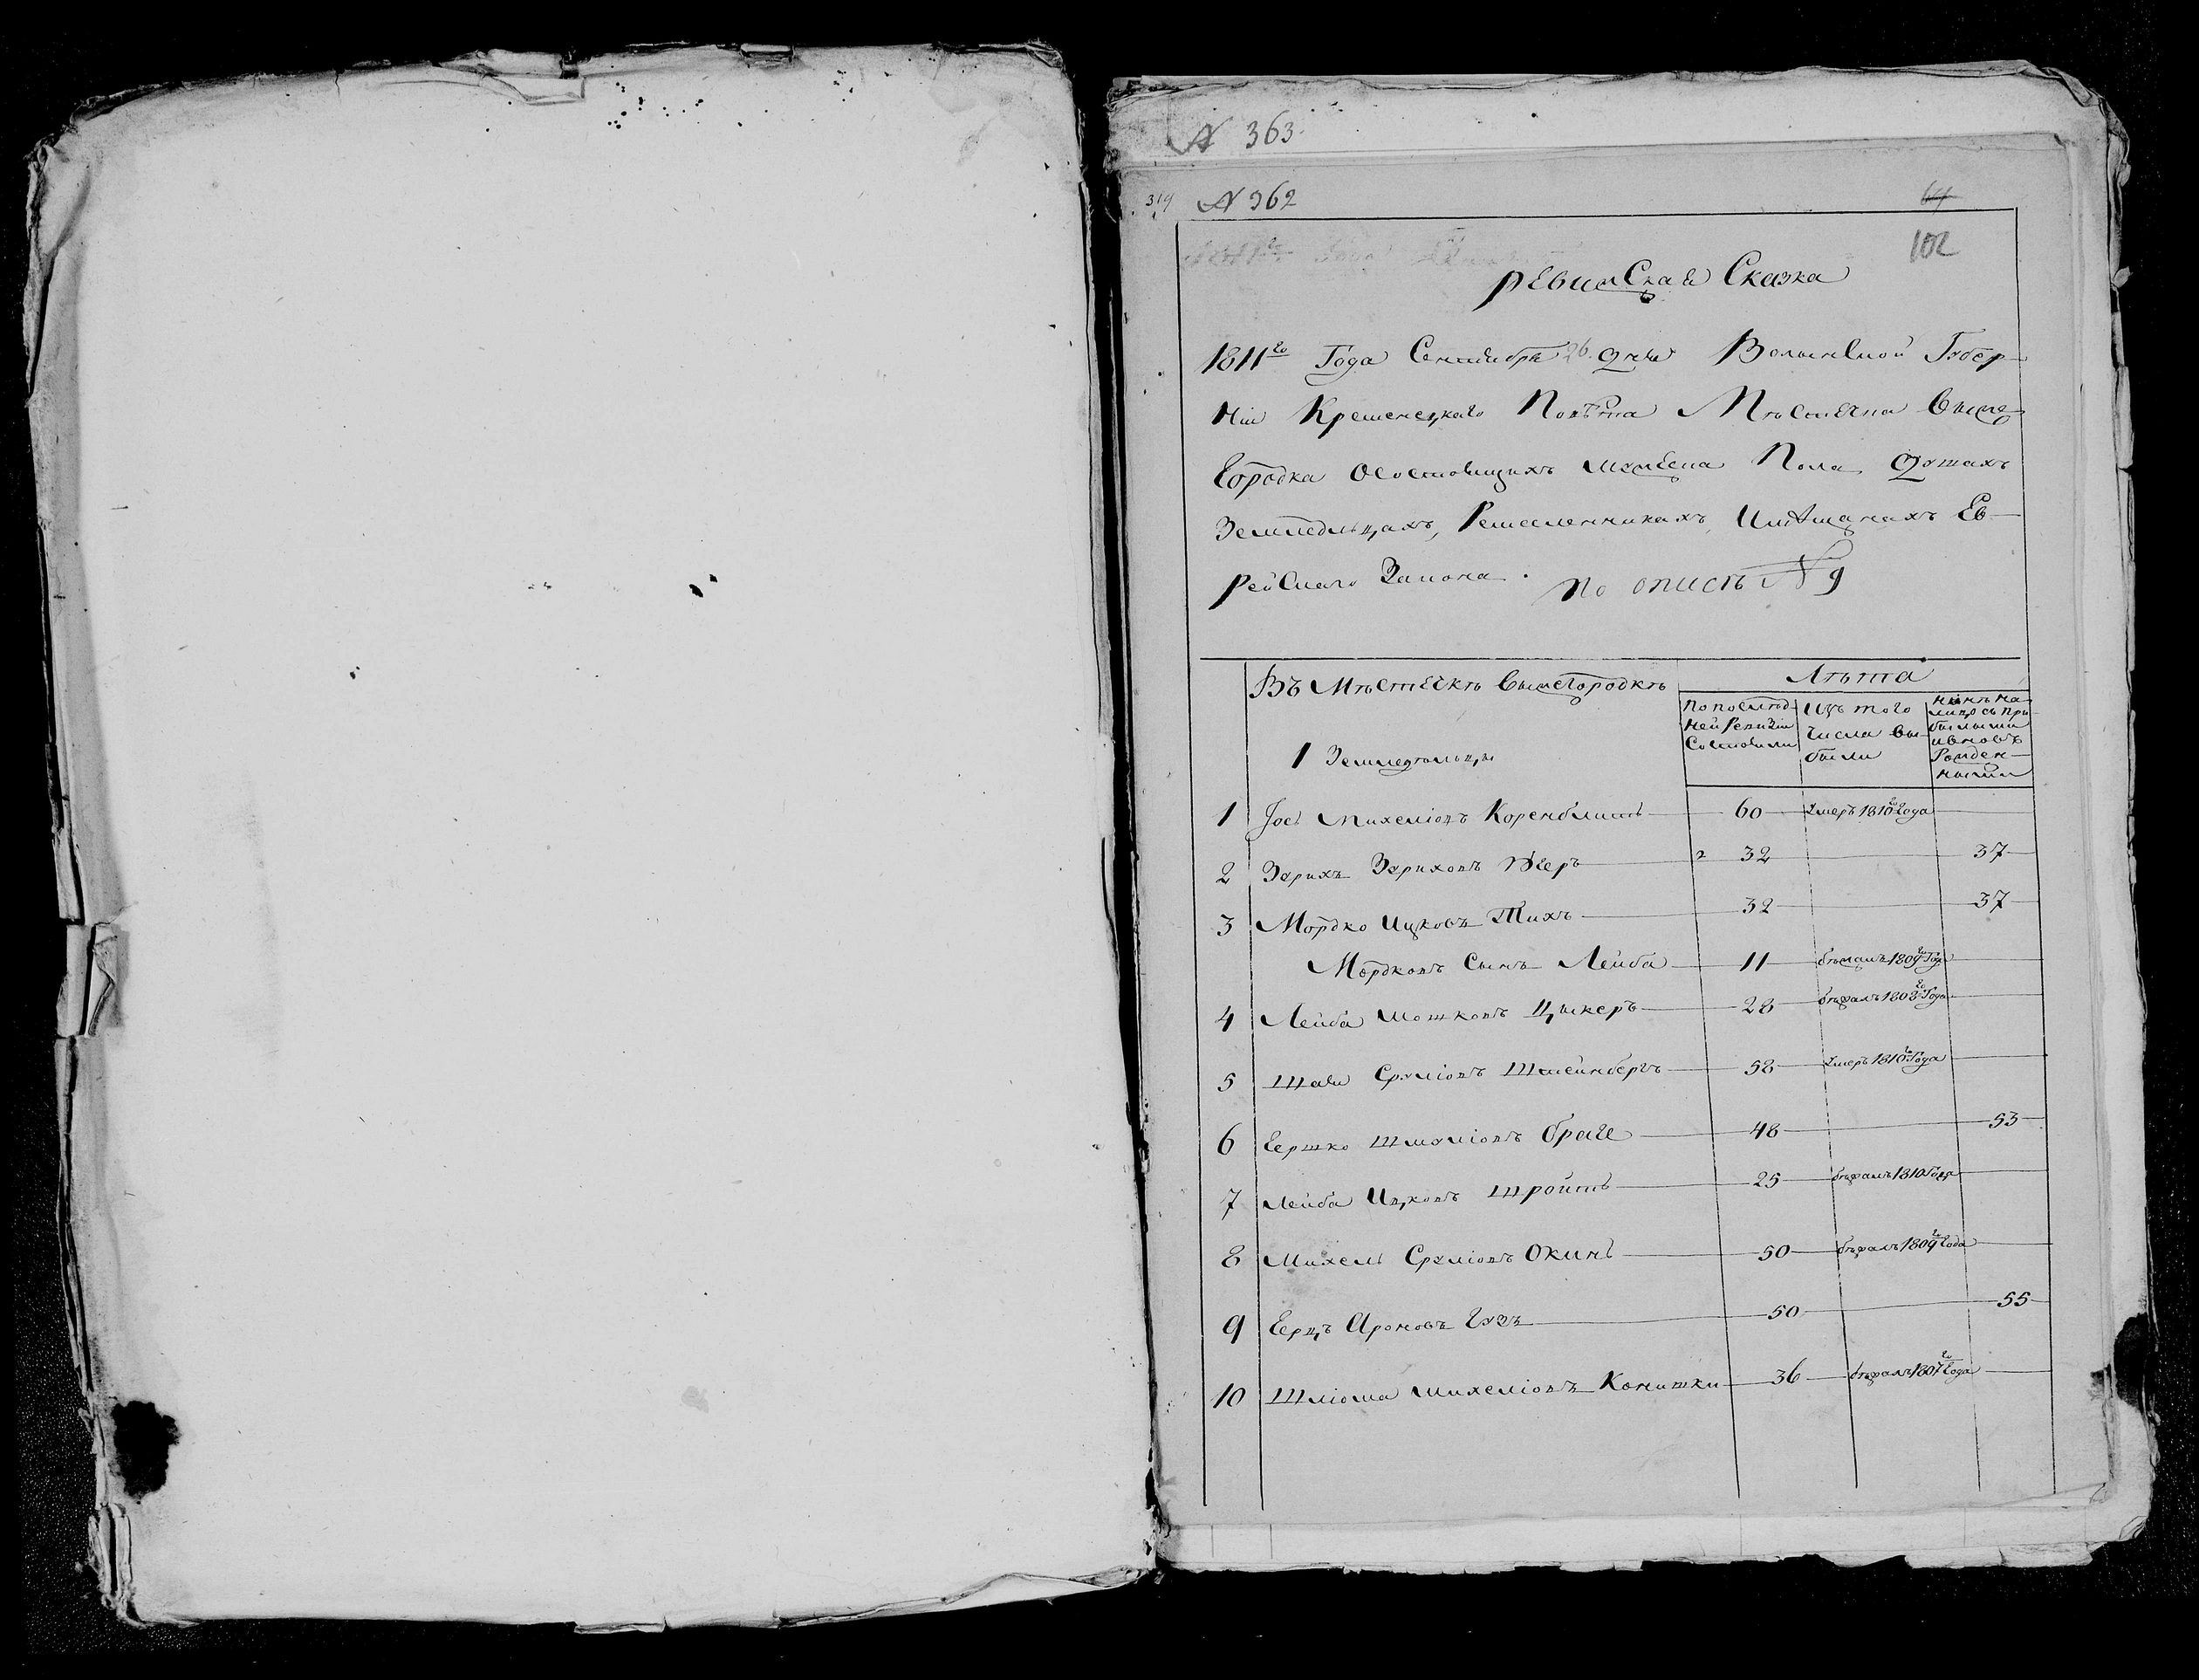 N 363
319 N 362
64
102
Ревизская Сказка
1811го Года Сентября 26 дня Волынской Губер-
нiи Кременецкаго Повѣта Мѣстечка Выше
городка Осостоящихъ мужеска Пола душахъ
Земледѣльцахъ, Ремесленникахъ, Имѣщанахъ Ев-
рейскаго Закона. По описѣ N 9
Въ Мѣстечкѣ Вышегородкѣ
Лѣта
По послѣд-
ней Ревизiи
Состояли
Изъ того
числа вы-
были
Нынѣ на-
лицо съ при
былыми
иновъ
Рожден-
ными
1 Земледѣльцы
1 Iось Михелiовъ Коренблитъ 60 Умеръ 1810го Года
2 Зурихъ Зуриховъ 32 37
3 Мордко Ицковъ Тихъ 32 37
Мордковъ Сынъ Лейба 11 бѣжалъ 1809го Года
4 Лейба Мошковъ Цукеръ 28 бѣжалъ 1808го Года
5 Шая Срулiовъ Штейнбергъ 58 Умеръ 1810го Года
6 Гершко Шмулiовъ 48 53
7 Лейба Ицковъ Шройтъ 25 бѣжалъ 1810 Года
8 Михель Срулiовъ Окинь 50 бѣжалъ 1809го Года
9 Герцъ Ароновъ 50 55
10 Шлiома Михелiовъ 36 бѣжалъ 1807го Года